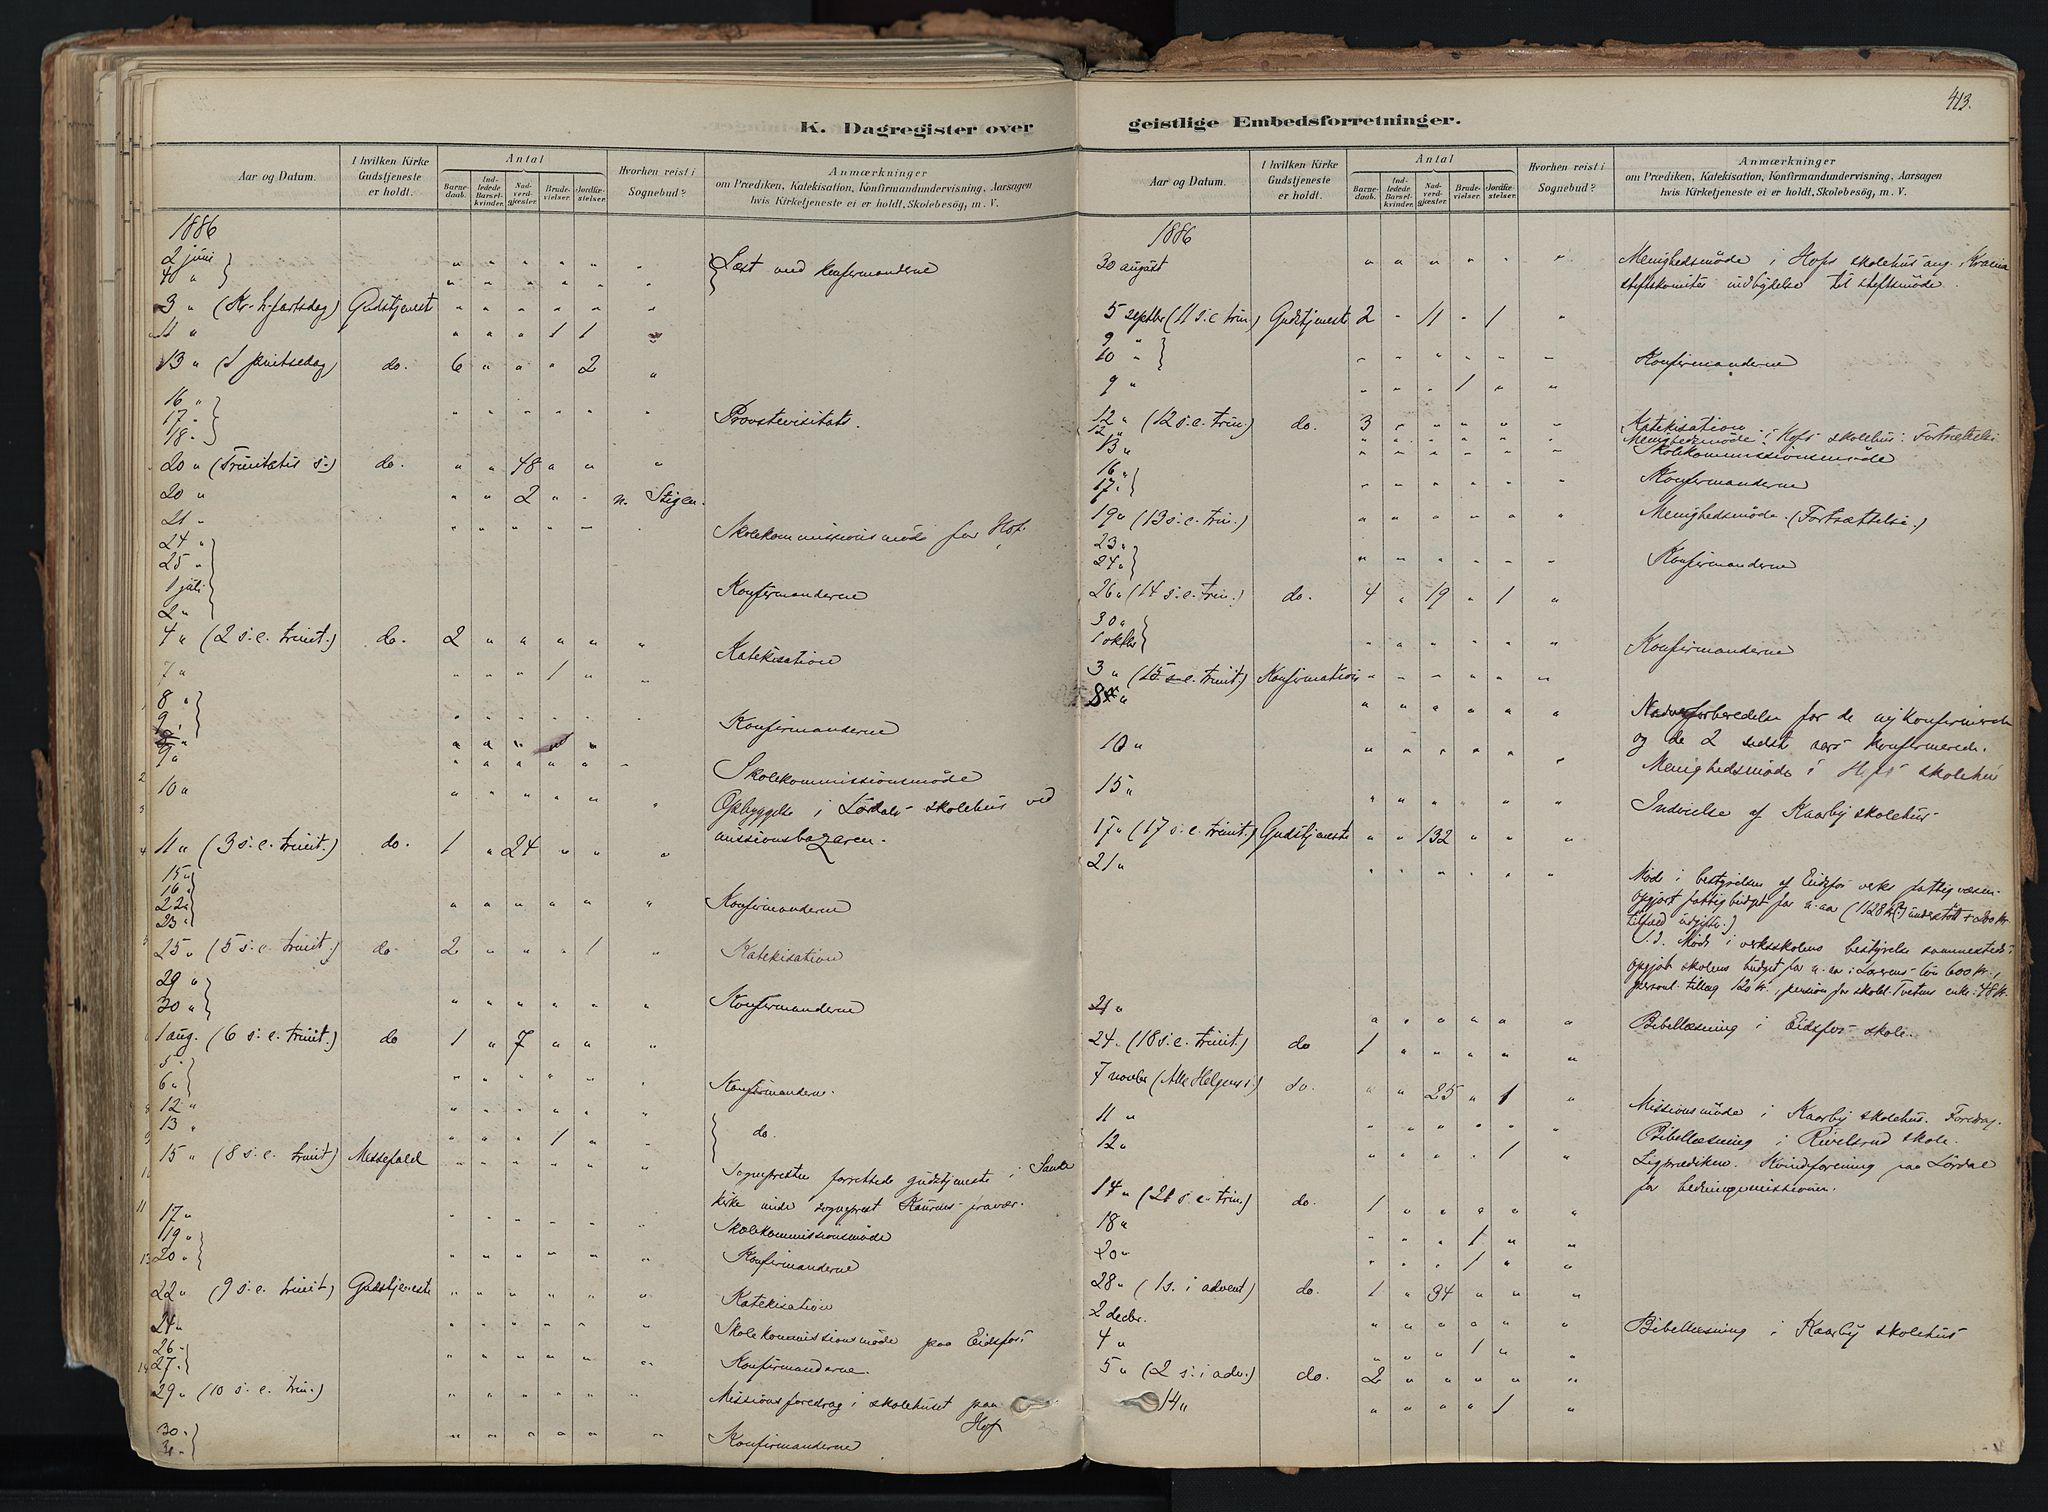 413.
K. Dagregister over geistlige Embedsforretninger.
Aar og Datum. I hvilken Kirke Gudstjeneste er holdt. Antal Barnedaab. Indledede Barselkvinder. Nadverdgjæster. Brudevielser. Jordfæstelser. Hvorhen reist i Sognebud? Anmærkninger om Prædiken, Katekisation, Konfirmandundervisning, Aarsagen hvis Kirketjeneste ei er holdt, Skolebesög, m. V.
1886
2 juni
4 " Læst med konfirmanderne
3 " (Kr. h-fartsdag) Gudstjenest " " " " " "
11 " " " " 1 1 "
13 " (1 pinitsedag) do. 6 " " " 2 "
16 "
17 "
18 " Provstevisitats.
20 " (Trinitatis s.) do. " " 48 " " "
20 " " " 2 " " n. Stigen.
21 " Skolekommissionsmøde for Hof.
24 "
25 "
1 juli
2 " Konfirmanderne
4 " (2 s. e. trinit.) do. 2 " " " " " Katekisation
7 " " " " 1 " "
8 "
9 " Konfirmanderne
9 " Skolekommissionsmøde
10 " Opbyggelse i Lørdals skolehus ved
missionsbazaren.
11 " (3 s. e. trinit.) do. 1 " 24 " " "
15 "
16 "
22 "
23 " Konfirmanderne
25 " (5 s. e. trinit.) do. 2 " " " 1 " Katekisation
29 "
30 " Konfirmanderne
1 aug. (6 s. e. trinit.) do 1 " 7 " " "
5 "
6 " Konfirmanderne.
12 "
13 " " " " 1 " " do.
15 " (8 s. e. trinit) Messefald Sognepresten forrettede gudstjeneste i Sande
kirke under sogneprest Kaurens fravær.
17 " Skolekommissionsmøde
19 "
20 " Konfirmanderne
22 " (9 s. e. trinit.) Gudstjeneste " " " " " " Katekisation
24 " Skolekommissionsmøde paa Eidsfos
26 "
27 " Konfirmanderne.
29 " (10 s. e. trin.) Missionsforedrag i skolehuset paa
Hof
30 "
31 " Konfirmanderne
Aar og Datum. I hvilken Kirke Gudstjeneste er holdt. Antal Barnedaab. Indledede Barselkvinder. Nadverdgjæster. Brudevielser. Jordfæstelser. Hvorhen reist i Sognebud? Anmærkninger om Prædiken, Katekisation, Konfirmandundervisning, Aarsagen hvis Kirketjeneste ei er holdt, Skolebesög, m. V.
1886
30 august Menighedsmøde i Hofs skolehus ang. Krania
stiftskomites indbydelse til stiftsmøde.
5 septber (11 s. e. trin.) Gudstjeneste 2 " 11 " 1 "
9 "
10 " Konfirmanderne
9 " " " " 1 " "
12 " (12 s. e. trin.) do. 3 " " " " " Katekisation
12 " Menighedsmøde i Hofs skolehus: Fortsættelse
13 " Skolekommissionsmøde
16 "
17 " Konfirmanderne
19 " (13 s. e. trin.) Menighedsmøde. (Fortsættelse.)
23 "
24 " Konfirmanderne
26 " (14 s. e. trin.) do. 4 " 19 " 1 "
30 "
1 oktbr Konfirmanderne
3 " (15 s. e. trinit.) Konfirmation " " " " " "
8 " Nadverforberedelse for de nykonfirmerede
og de 2 sidst aars konfirmerede.
10 " Menighedsmøde i Hofs skolehus
15 " Indvielse af Kaarby skolehus.
17 " (17 s. e. trinit.) Gudstjeneste " " 132 " " "
21 " Møde i bestyrelsen af Eidsfos verks fattigvæsen.
Opgjort fattigbudget for n. aar (1128 kr. understøt. + 200 kr.
tilfæld. udgifter.)
S. d. Møde i verksskolens bestyrelse sammesteds:
Opgjort skolens budget for n. aar: Lærerens løn 600 kr.,
personl. tillæg 120 kr., pension for skolel. Tvetens enke: 48 kr.
21 " Bibellæsning i Eidsfos skole.
24 " (18 s. e. trinit.) do 1 " " " " "
7 novbr (Alle Helgens s.) do. " " 25 " 1 "
11 " Missionsmøde i Kaarby skolehus. Foredrag.
12 " " " " " 1 " Bibellæsning i Rivelsrud skole.
Ligprædiken. Kvindforening paa Lørdal
for hedningemissionen.
14 " (21 s. e. trin.) do. 1 " " " " "
18 " " " " 1 " "
20 " " " " 1 " "
28 " (1 s. i advent) do. 1 " 34 " " "
2 decbr. Bibellæsning i Kaarby skolehus
4 " " " " 1 " "
5 " (2 s. i adv.) do. 2 " " " " "
14 " " " " " 1 "